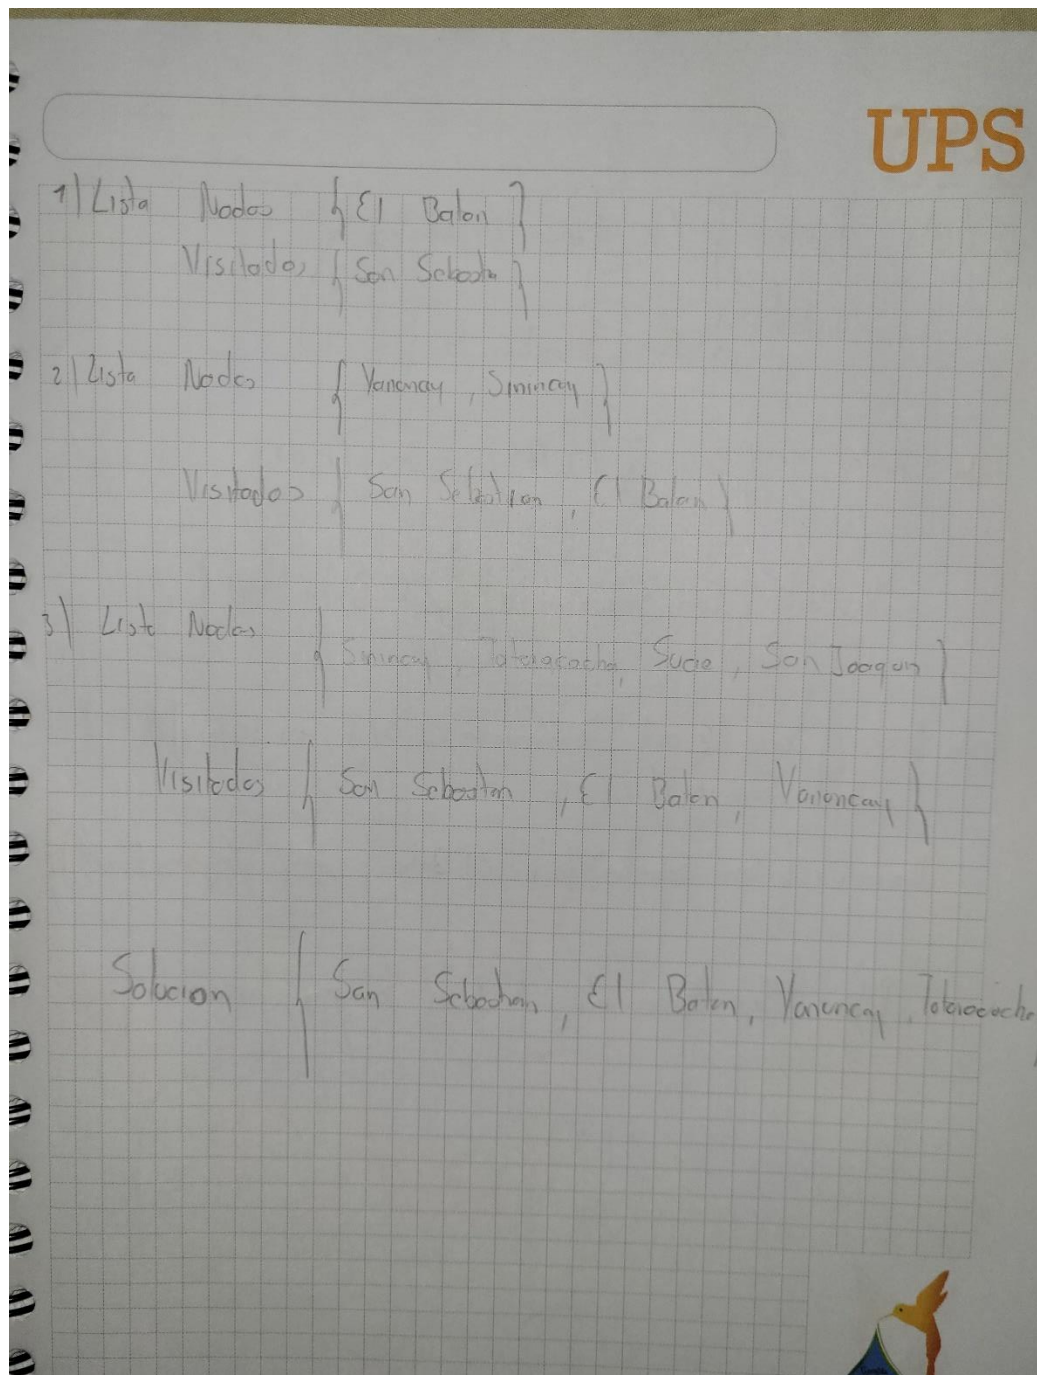 UPS
1) Lista Nodos { El Batan }
Visitados { San Sebastia }
2) Lista Nodos { Yanuncay, Sinincay }
Visitados { San Sebastian, El Batan }
3) Lista Nodos
{ Sinincay, Totoracocha, Sucre, San Joaquin }
Visitados { San Sebastian, El Batan, Yanuncay }
Solucion { San Sebastian, El Batan, Yanuncay, Totoracocha